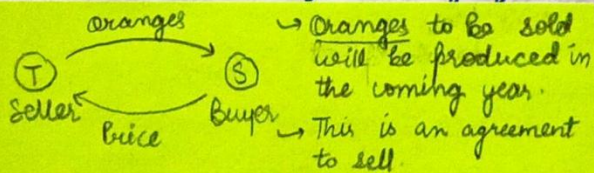 oranges
T
S
Seller
Buyer
Price
→ Oranges to be sold
will be produced in
the coming year.
→ This is an agreement
to sell.